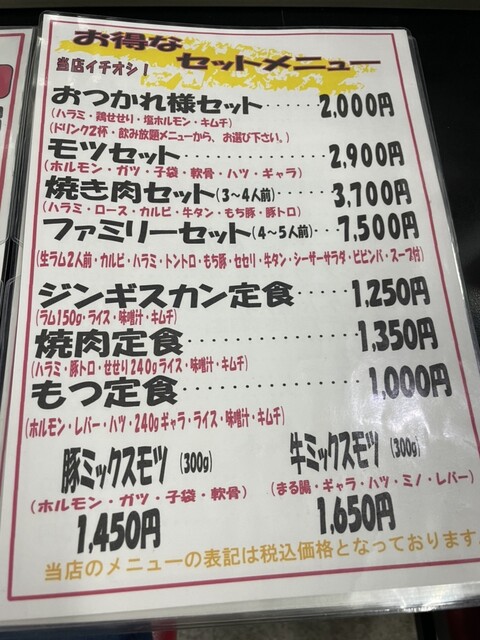 お得な
セットメニュー
当店イチオシ!
おつかれ様セット······2,000円
(ハラミ・鶏せせり・塩ホルモン・キムチ)
(ドリンク2杯・飲み放題メニューから、お選び下さい。)
モツセット············2,900円
(ホルモン・ガツ・子袋・軟骨・ハツ・ギャラ)
焼き肉セット(3~4人前)···3,700円
(ハラミ・ロース・カルビ・牛タン・もち豚・豚トロ)
ファミリーセット(4~5人前)··7,500円
(生ラム2人前・カルビ・ハラミ・トントロ・もち豚・セセリ・牛タン・シーザーサラダ・ビビンバ・スープ付)
ジンギスカン定食······1,250円
(ラム150g・ライス・味噌汁・キムチ)
焼肉定食··············1,350円
(ハラミ・豚トロ・せせり240gライス・味噌汁・キムチ)
もつ定食··············1,000円
(ホルモン・レバー・ハツ・240gギャラ・ライス・味噌汁・キムチ)
豚ミックスモツ (300g)
(ホルモン・ガツ・子袋・軟骨)
1,450円
牛ミックスモツ (300g)
(まる腸・ギャラ・ハツ・ミノ・レバー)
1,650円
当店のメニューの表記は税込価格となっております